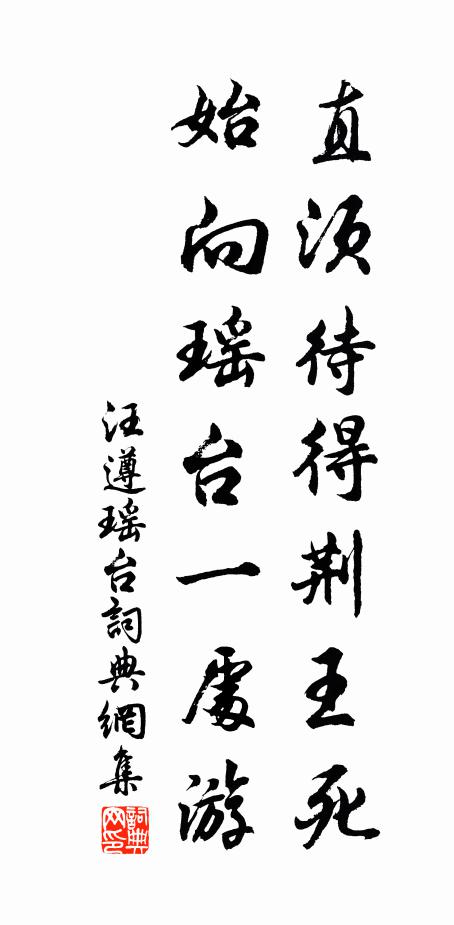 直须待得荆王死
始向瑶台一處游
汪遵瑶台詞典網集
詞典网印